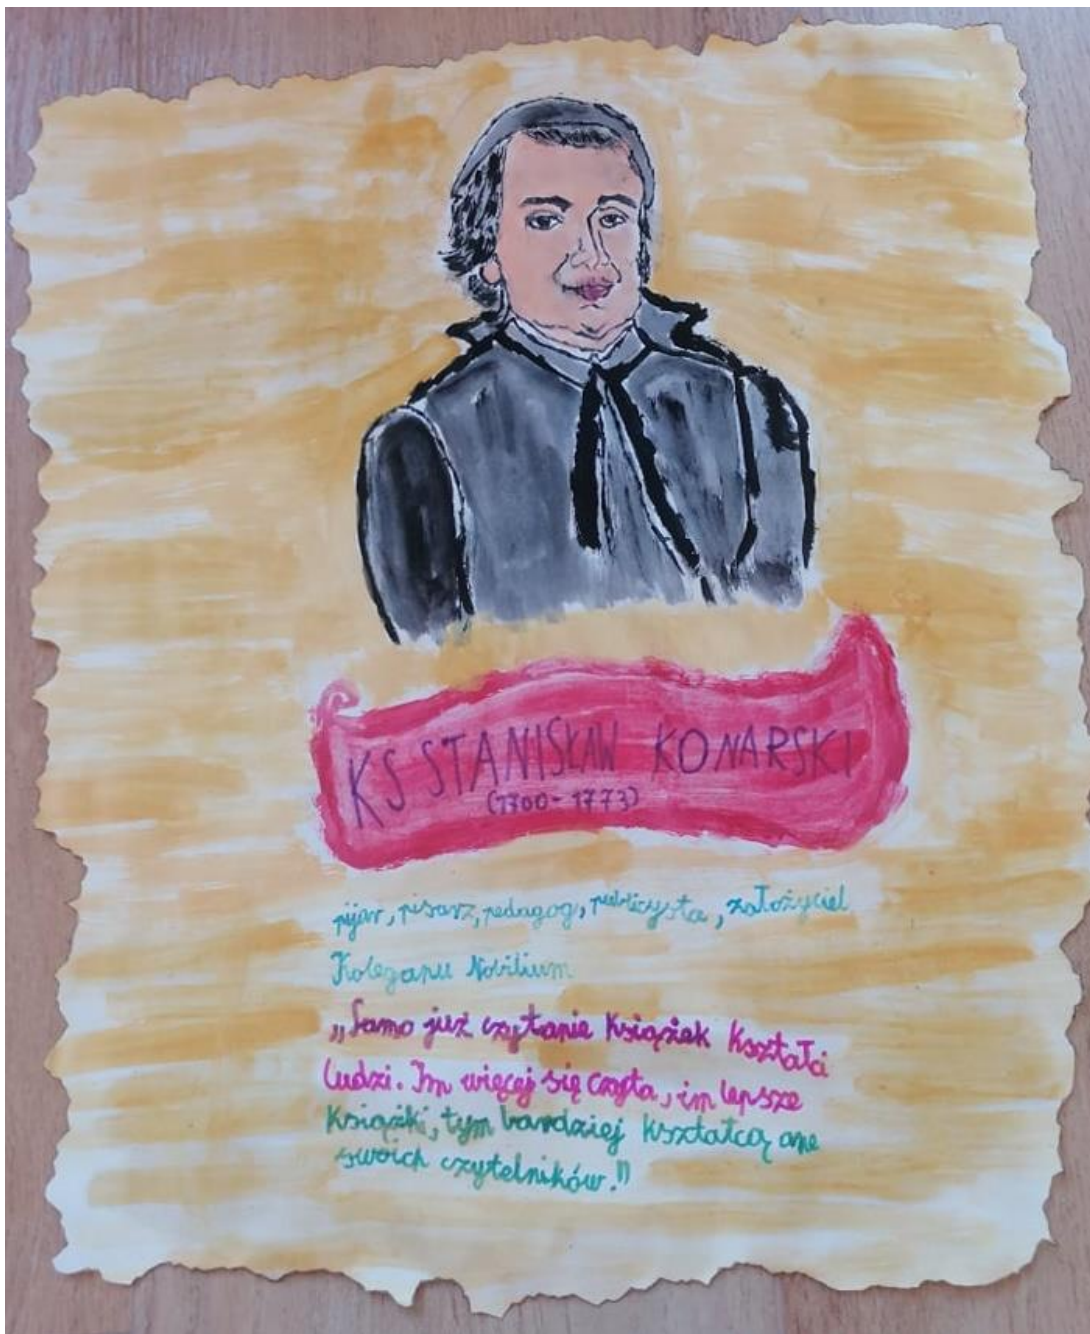 KS STANISŁAW KONARSKI
(1700-1773)
pijar, pisarz, pedagog, publicysta, założyciel
Koleganu Nobilium
„Samo już czytanie Książek Kształci
ludzi. Im więcej się czyta, im lepsze
Książki, tym bardziej kształcą one
swoich czytelników."